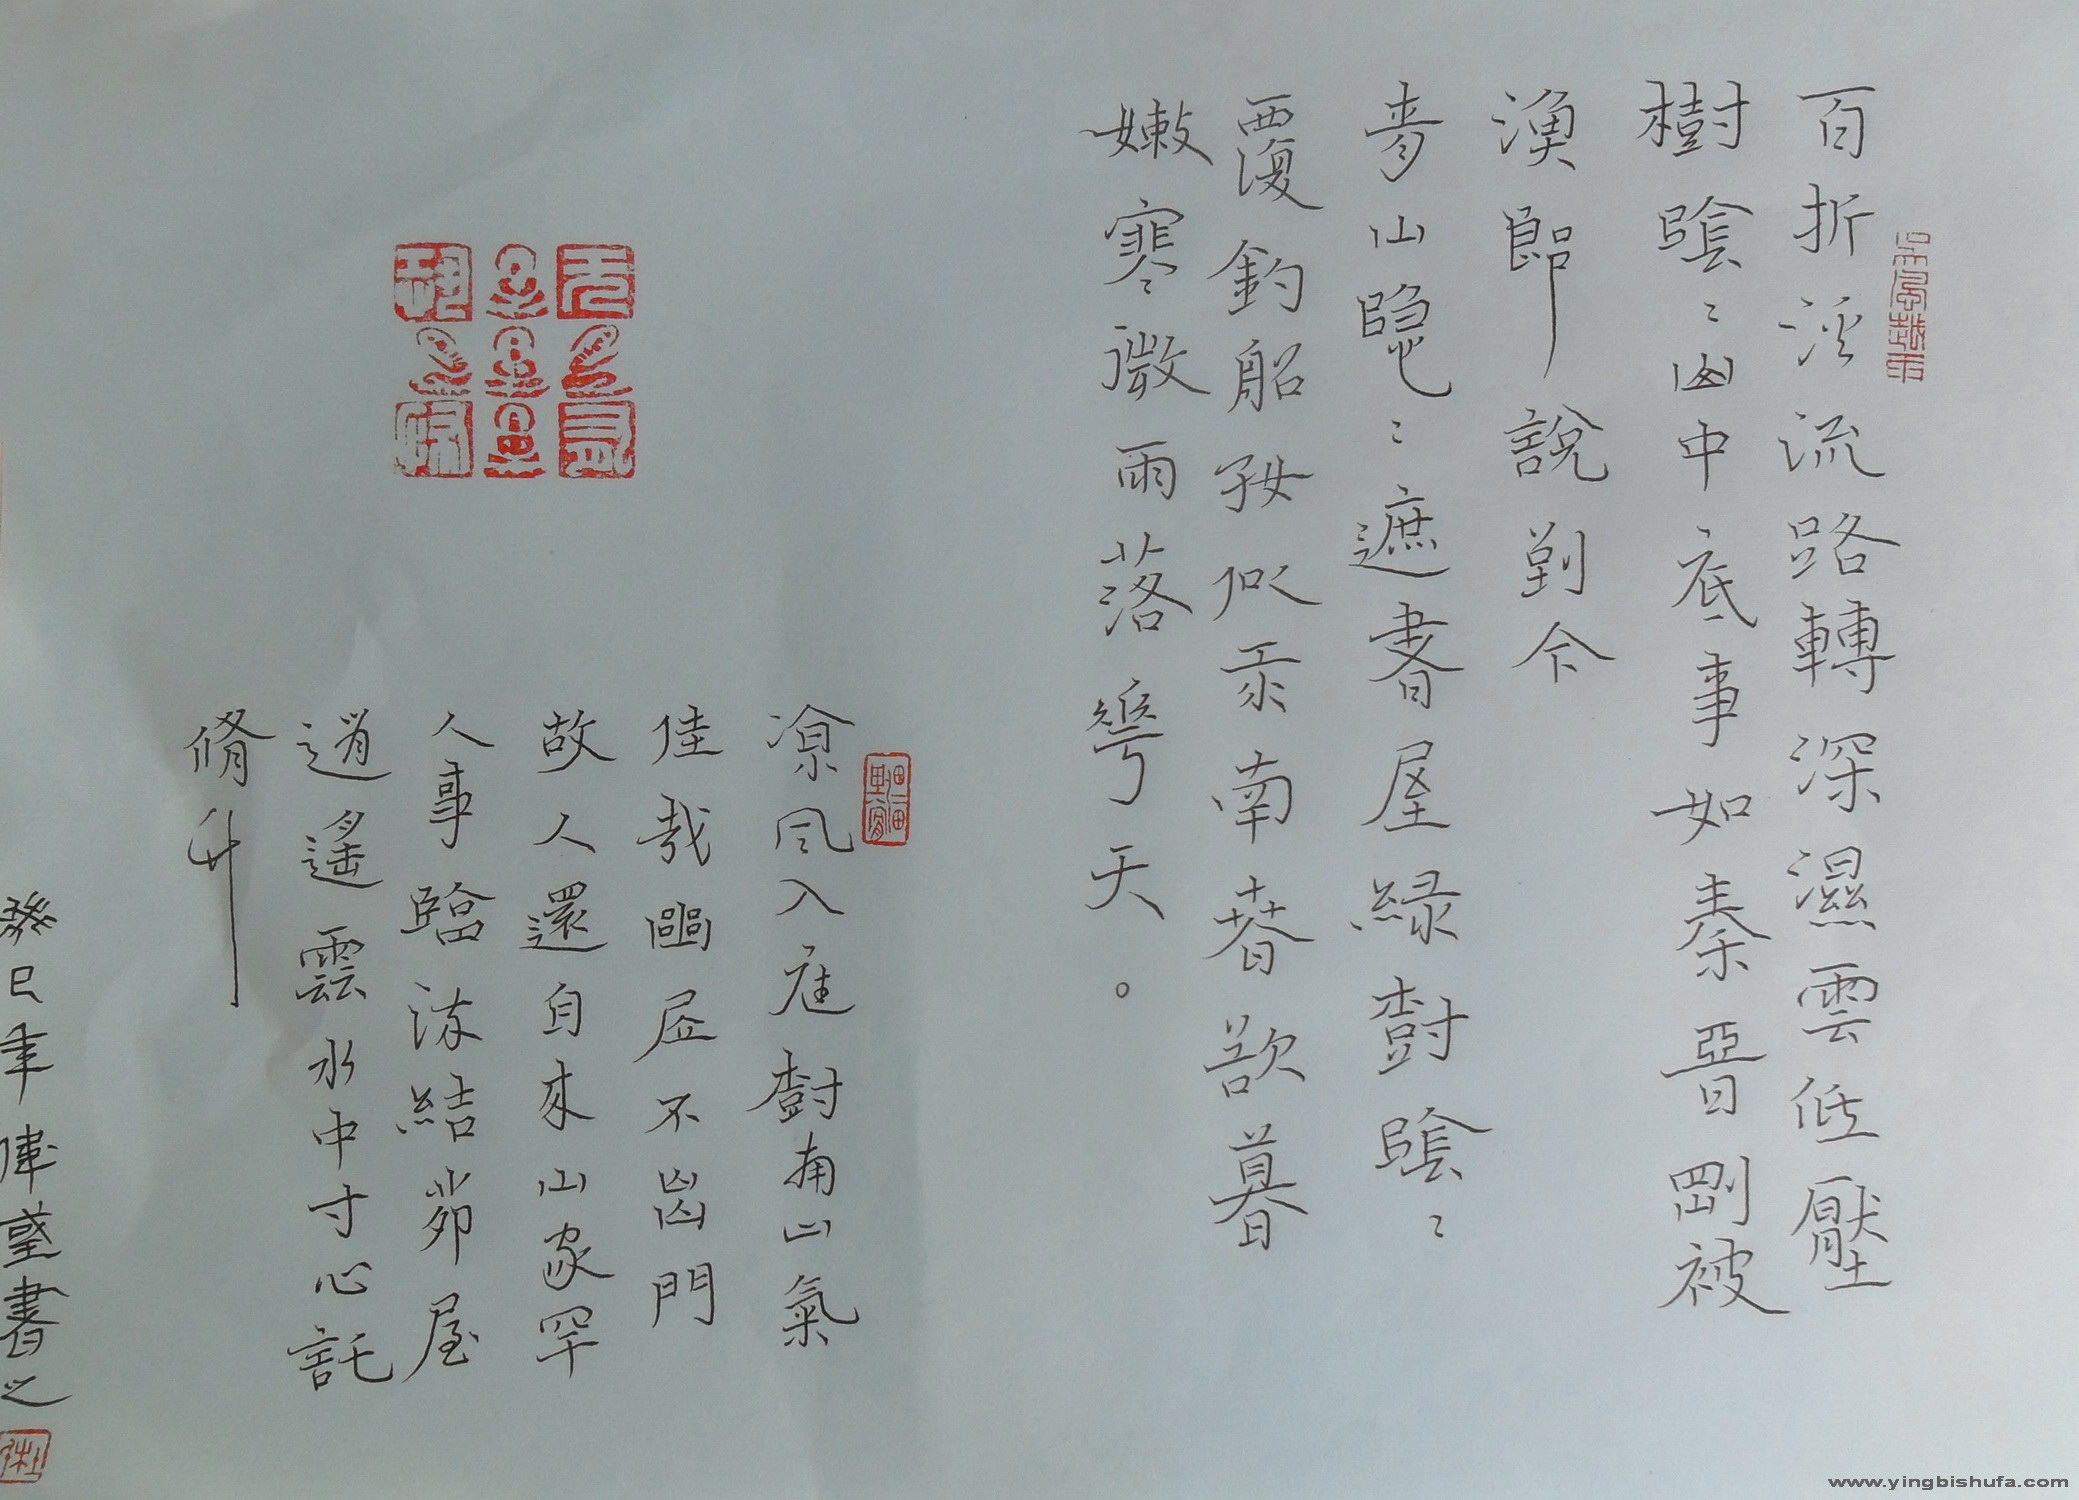 百折溪流路轉深濕雲低壓
樹陰〻山中底事如秦晉剛被
漁郎說到今
青山隐〻遮書屋綠樹陰〻
覆釣船好似江南春欲暮
嫩寒微雨落花天。
涼風入庭樹南山氣
佳哉幽居不出門
故人還自來山家罕
人事臨流結茆屋
逍遙雲水中寸心託
脩
癸巳年偉望書之
www.yingbishufa.com